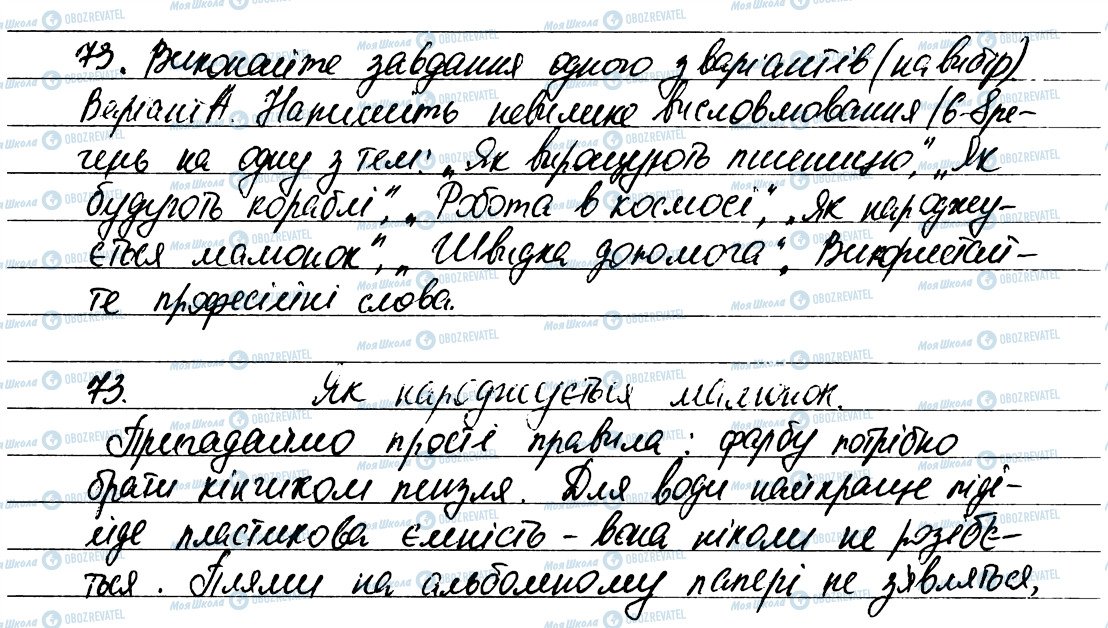 73. Виконайте завдання одного з варіантів (на вибір).
Варіант А. Напишіть невелике висловлювання /6-8 ре-
чень на одну з тем: „Як вирощують пшеницю", „Як
будують кораблі", „Робота в космосі", „Як народжу-
ється малюнок", „Швидка допомога". Використай-
те професійні слова.
73. Як народжується малюнок.
Пригадаймо прості правила: фарбу потрібно
брати кінчиком пензля. Для води найкраще піді-
йде пластикова ємність – вона ніколи не розіб'є-
ться. Плями на альбомному папері не з'являться,